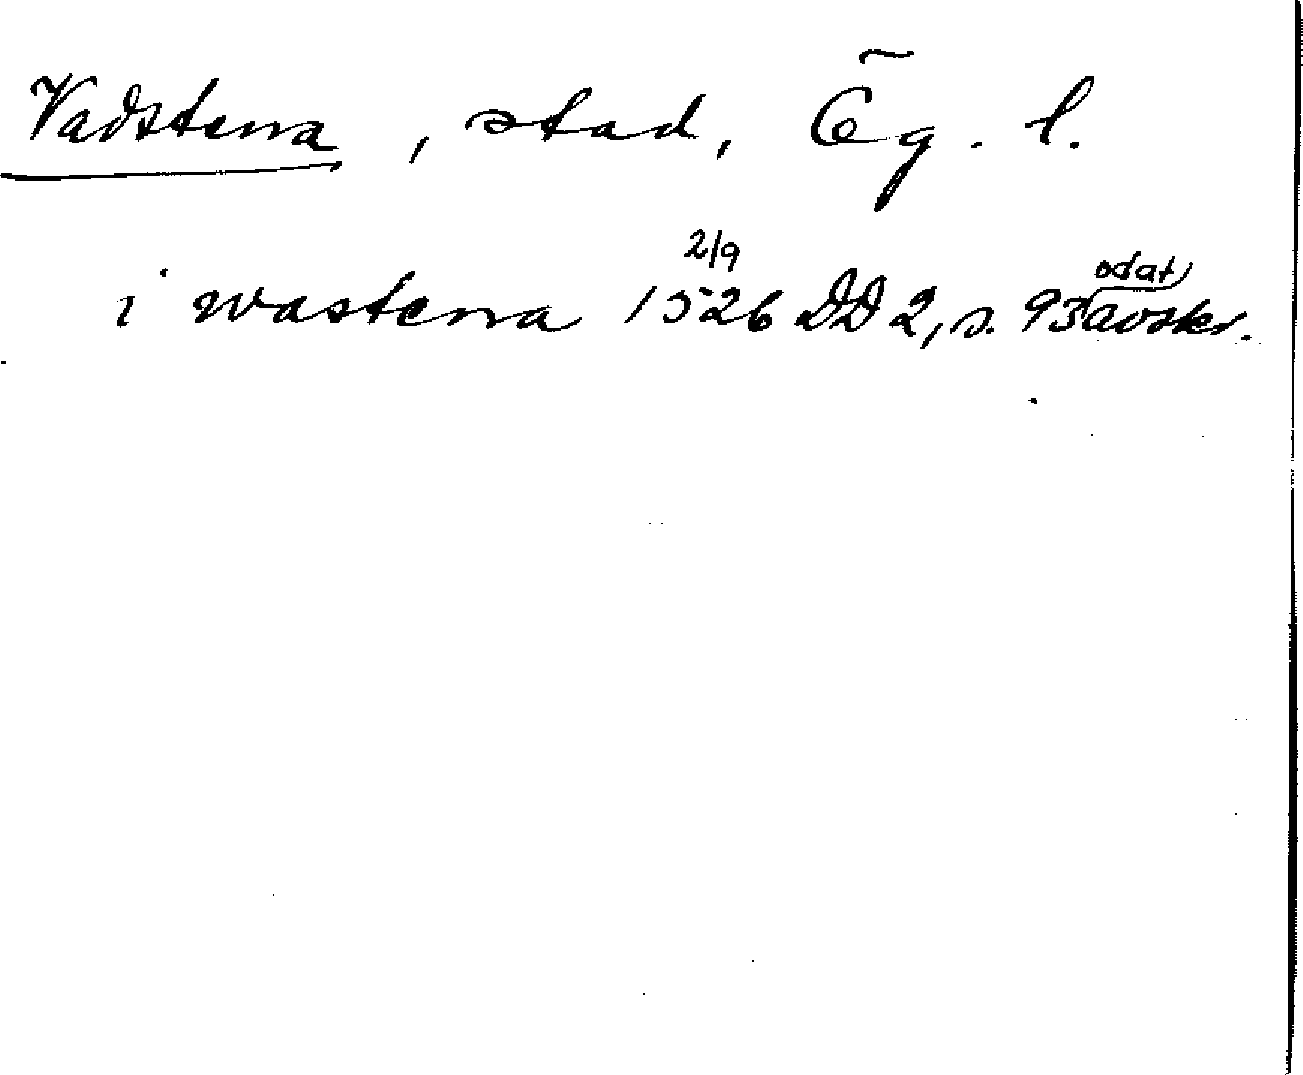 Vadstena, stad, Ög. l.
i wastena 1526 2/9 DD 2, s. 93 odat. avskr.